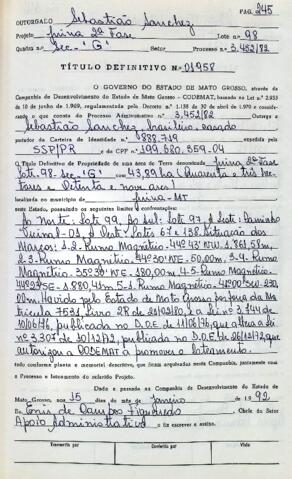 PAG. 245
OUTORGADO Sebastião Sanchez
Projeto Juina 2ª Fase Lote nº 98
Quadra nº Sec-'G' Setor Processo nº 3.452/82
TÍTULO DEFINITIVO Nº 01958
O GOVERNO DO ESTADO DE MATO GROSSO, através da
Companhia de Desenvolvimento do Estado de Mato Grosso - CODEMAT, baseado na Lei nº 2.933
de 10 de junho de 1.969, regulamentada pelo Decreto n.º 1.138 de 30 de abril de 1.970 e considerando
o que consta do Processo Administrativo nº 3.452/82
Sebastião Sanchez, brasileiro, casado
portador da Carteira de Identidade nº 888.719 expedida pela
SSP/PR e do CPF nº 199.580.359-04
O Título Definitivo de Propriedade de sua área de Terra denominada Juina 2ª Fase
Lote-98-sec-'G' com 43,89 ha (Quarenta e três Hec
tares e Oitenta e nove ares)
localizada no município de Juina-MT
neste Estado, possuindo os seguintes limites e confrontações:
Ao Norte, Lote 99, Ao Sul: Lote 97, à Leste: Caminho
Juina 1-01, à Oeste, Lotes 67 e 138. Situação dos
Marcos: 1-2-Rumo Magnético-44º43'NW-1.861,58m,
2-3-Rumo Magnético-44º30'NE-50,00m, 3-4-Rumo
Magnético-35º30'NE-180,00m 4-5-Rumo Magnético-
44º23'SE-1.880,45m 5-1-Rumo Magnético-40º00'SW-230,
00m. Havido pelo Estado de Mato Grosso por força da Ma
trícula 7531, Livro 28 de 25/02/80, e a Lei nº 3.744 de
10/06/76, publicada no D.O.E de 11/06/76, que altera a Lei
nº 3.307 de 10/12/72, publicada no D.O.E de 26/12/72, que
autorizou a CODEMAT à promover o loteamento.
tudo conforme planta e memorial descritivo, que ficam arquivados nesta Companhia, juntamente com
o Processo a Inteiramento do referido Projeto.
Dado e passado na Companhia de Desenvolvimento do Estado de
Mato Grosso, aos 15 dias do mês de Janeiro de 1.992
Eu, Enis de Campos Figueiredo Chefe do Setor
Apoio Administrativo o fiz escrever e assino.
Transcrita por Conferida por Visto